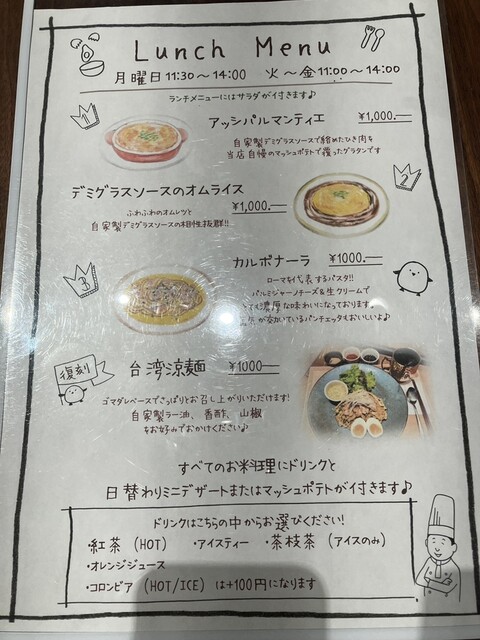 Lunch Menu
月曜日11:30～14:00 火～金11:00～14:00
ランチメニューにはサラダが付きます♪
1
アッシパルマンティエ ¥1,000.—
自家製デミグラスソースで絡めたひき肉を
当店自慢のマッシュポテトで覆ったグラタンです
2
デミグラスソースのオムライス
¥1,000.—
ふわふわのオムレツと
自家製デミグラスソースの相性抜群!!
3
カルボナーラ ¥1000.—
ローマを代表するパスタ!!
パルミジャーノチーズ&生クリームで
濃厚な味わいになっております。
が効いているパンチェッタもおいしいよ♪
復刻
台湾涼麺 ¥1000—
ゴマダレベースでさっぱりとお召し上がりいただけます!
自家製ラー油、香酢、山椒
をお好みでおかけください♪
すべてのお料理にドリンクと
日替わりミニデザートまたはマッシュポテトが付きます♪
ドリンクはこちらの中からお選びください!
・紅茶 (HOT) ・アイスティー ・茶枝茶 (アイスのみ)
・オレンジジュース
・コロンビア (HOT/ICE) は+100円になります